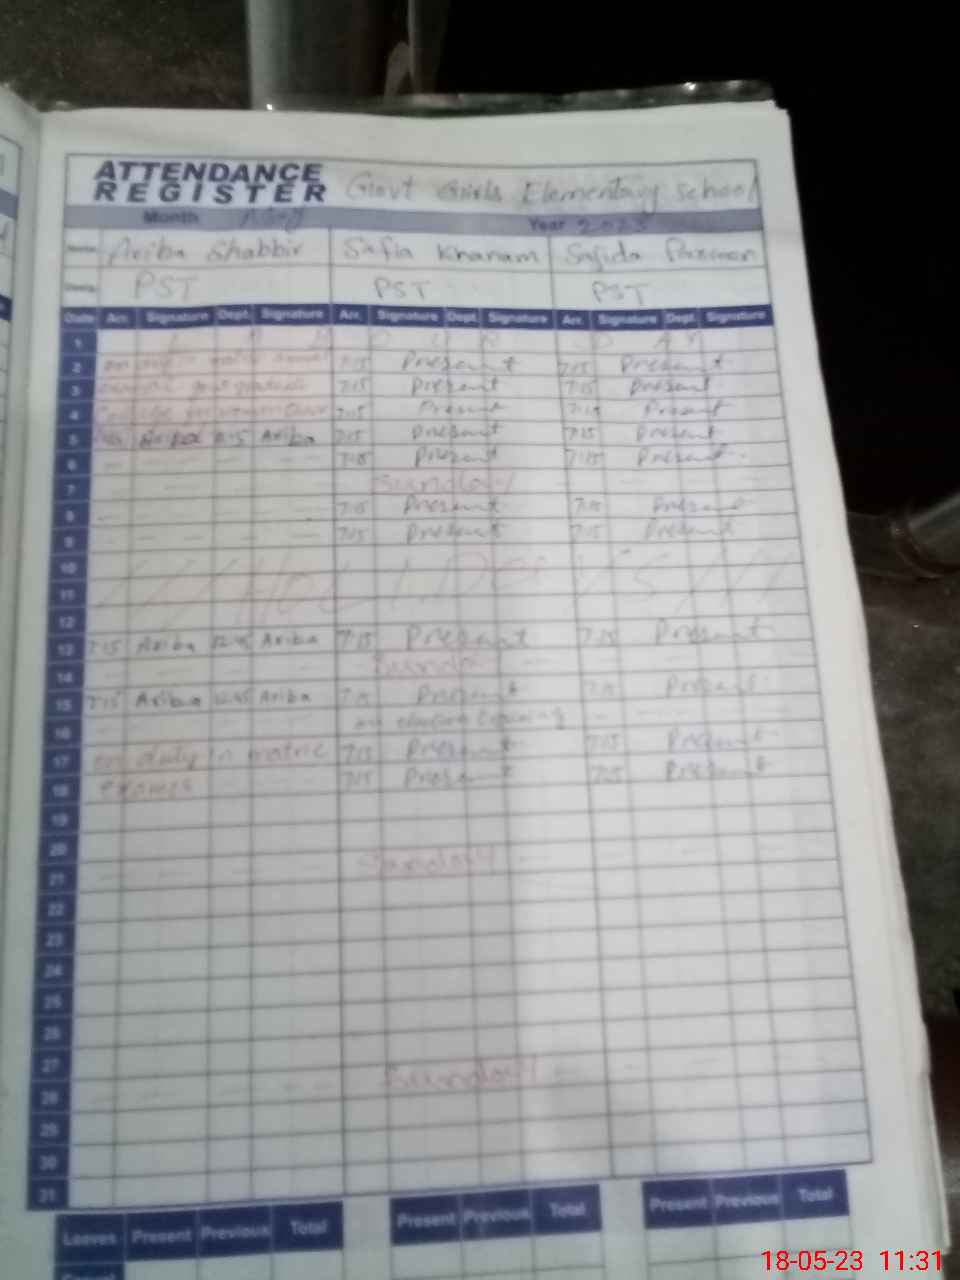 ATTENDANCE
REGISTER Govt Girls Elementary School
Month Year 2023
Name Ariba Shabbir Safia Khanam Sajida Parveen
PST PST PST
Date Arr. Signature Dept. Signature Arr. Signature Dept. Signature Arr. Signature Dept. Signature
1
2 7:15 Present 7:15 Present
3 7:15 Present 7:15 Present
4 7:15 Present 7:15 Present
5 Ariba Ariba 7:15 Present 7:15 Present
6 7:15 Present 7:15 Present
7 Sunday
8 7:15 Present 7:15 Present
9 7:15 Present 7:15 Present
10
11
12
13 7:15 Ariba 12:45 Ariba 7:15 Present 7:15 Present
14
15 7:15 Ariba 12:45 Ariba 7:15 Present 7:15 Present
16
17 on duty in matric 7:15 Present 7:15 Present
18 exams 7:15 Present 7:15 Present
19
20
21 Sunday
22
23
24
25
26
27
28 Sunday
29
30
31
Leaves Present Previous Total Present Previous Total Present Previous Total
18-05-23 11:31